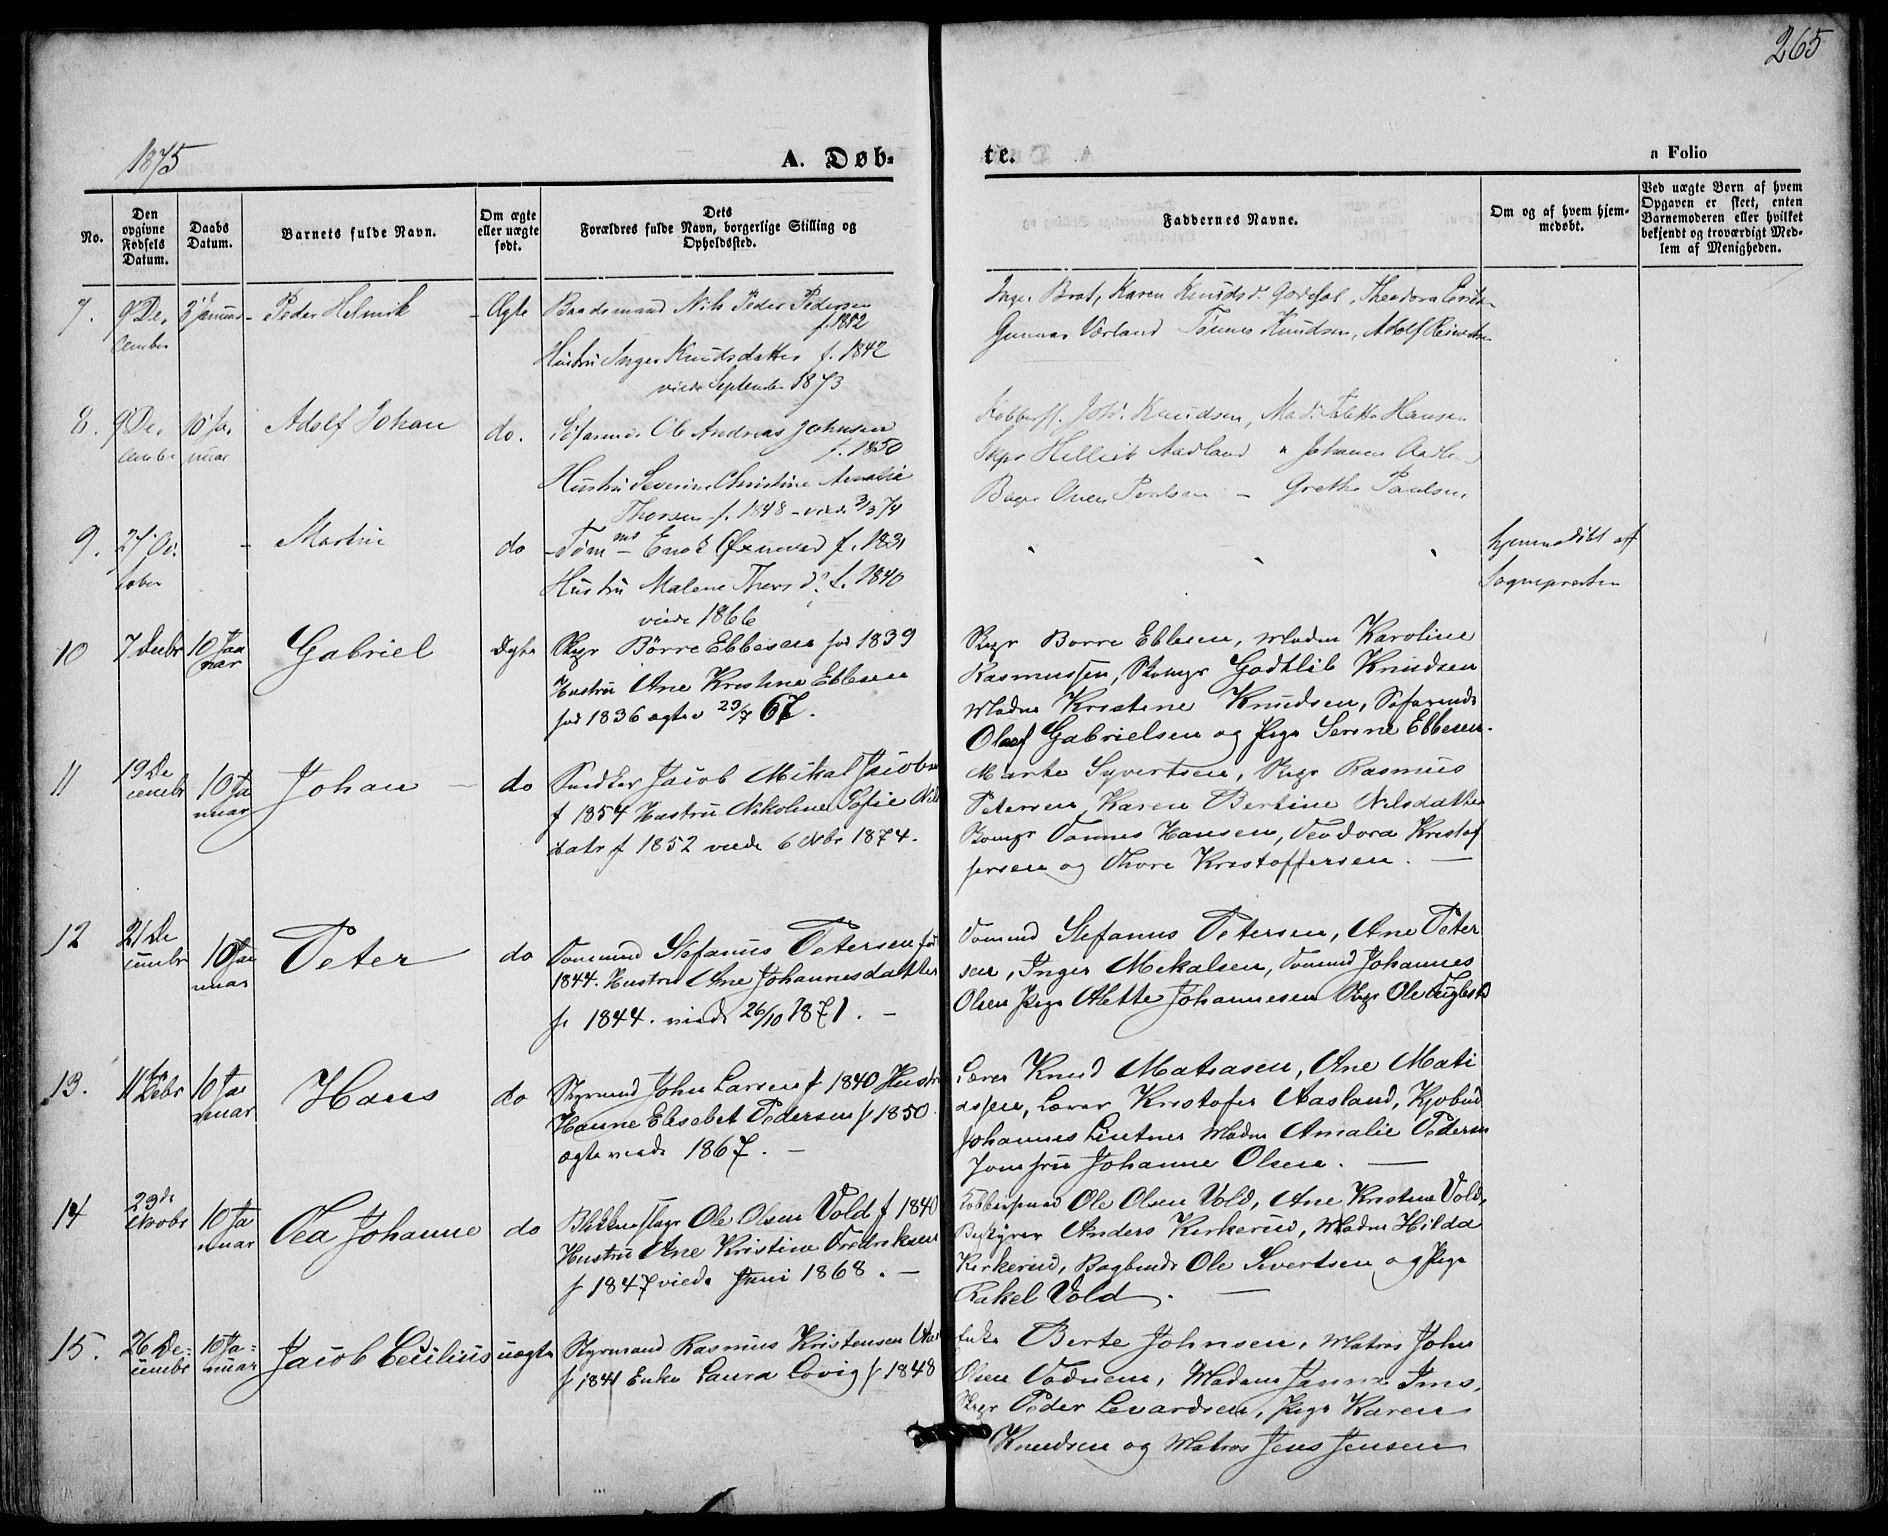 265
1875
A. Døb-
te.
n Folio
No.
Den opgivne Fødsels Datum.
Daabs Datum.
Barnets fulde Navn.
Om ægte eller uægte født.
Dets Forældres fulde Navn, borgerlige Stilling og Opholdssted.
Faddernes Navne.
Om og af hvem hjemmedøbt.
Ved uægte Børn af hvem Opgaven er skeet, enten Barnemoderen eller hvilket bekjendt og troværdigt Medlem af Menigheden.
7. 9 De- 3 Januar - Peder Helmik - Ægte Baadsmand Nils Peder Pedersen
cember f. 1852
Hustru Inger Knudsdatter f. 1842
viede September 1873
Inger Brat, Karen Knudsd.
Gunnar Værland Tønnes Knudsen, Adolf
8. 9 De- 10 Ja- Adolf Johan do. Søfarende Ole Andreas Johnsen
cember nuar f. 1850
Hustru Severine Christine Amalie
Thorsen f. 1848 - viede 3/3 74
Joh. Knudsen, Mad. Talette Hansen
Skpr Hellich Aadland " Johanna
Paulsen - Grethe Paulsen
9. 27 Oc- - Martin do - Tømmd Enok Øxnevad f. 1831
tober
Hustru Malene Thorsd. f. 1840
viede 1866
hjemmedøbt af
Sognepresten
10 7 Decbr 10 Januar Gabriel Ægte Skpr Børre Ebbesen fød 1839
Hustru Ane Kristine Ebbesen
fød 1836 ægtev 23/7 67.
Skpr Børre Ebbesen, Madm Karoline
Rasmussen, Skomgr Godtlib Knudsen
Madm Kristine Knudsen, Søfarende
Oluf Gabrielsen og Pige Serine Ebbesen.
11 19 De 10 Ja Johan - do Snedker Jacob Mikal Jacobsen
cembr nuar f 1854 Hustru Nikoline Sofie Nils
datr f 1852 viede 6 Nbr 1874.
Marte Syvertsen, Skpr Rasmus
Petersen, Karen Bertine Nilsdatter
Skomgr Tønnes Hansen, Teodora Kristof
fersen og Thore Kristoffersen. -
12 21 De 10 Ja Peter do Tømmd Stefanus Petersen fød
cembr nuar 1844. Hustru Ane Johannesdatter
f. 1844. viede 26/10 1871. -
Tømmd Stefanus Petersen, Ane Peter
sen, Inger Mekalsen, Tømmd Johannes
Olsen Pige Alette Johannesen Skpr Ole Fuglestd
13. 11 Debr 10 Ja Hans do Styrmd John Larsen f 1840 Hustru
nuar Hanne Elisabet Pedersen f 1850.
ægtev viede 1867. -
Lærer Knud Matiasen, Ane Mati
assen, Lærer Kristofer Aasland, Kjøbmd
Johannes Lintner Madm Amalie Pedersen
Jomfru Johanne Olsen. -
14 23de 10 Ja Tea Johanne do Blikkenslagr Ole Olsen Vold f 1840
Oktobr nuar Hustru Ane Kristine Fredriksen
f 1847 viede Juni 1868. -
Ole Olsen Vold, Ane Kristine Vold,
Bestyrer Anders Kirkerud, Madm Hilda
Kirkerud, Bogbindr Ole Sivertsen og Pige
Rakel Vold. -
15. 26 De- 10 Ja- Jacob Cecilius uægte Styrmand Rasmus Kristensen
cembr nuar f 1841 Enke Laura Lovig f 1848
Enke Berte Johnsen, Matros John
Olsen Todnem, Madam Janna Ims,
Skpr Peder Levardsen, Pige Karen
Knudsen og Matros Jens Jensen